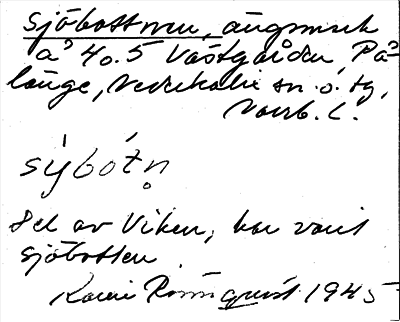 Sjöbottnen, ängsmark
å 4 o. 5 Västgården, På-
länge, Nederkalix sn. o. tg,
Norrb. L.
sy̍bót̀n̥
Del av Viken, har varit
sjöbotten.
Karin Rönnquist 1945